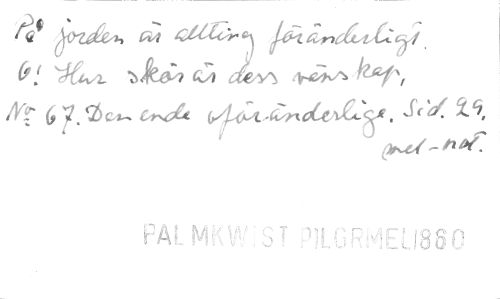 På jorden är allting föränderligt.
O! Hur skör är dess vänskap,
No 67. Den ende oföränderlige. Sid. 29.
mel-not.
PALMKWIST PILGRMEL1860